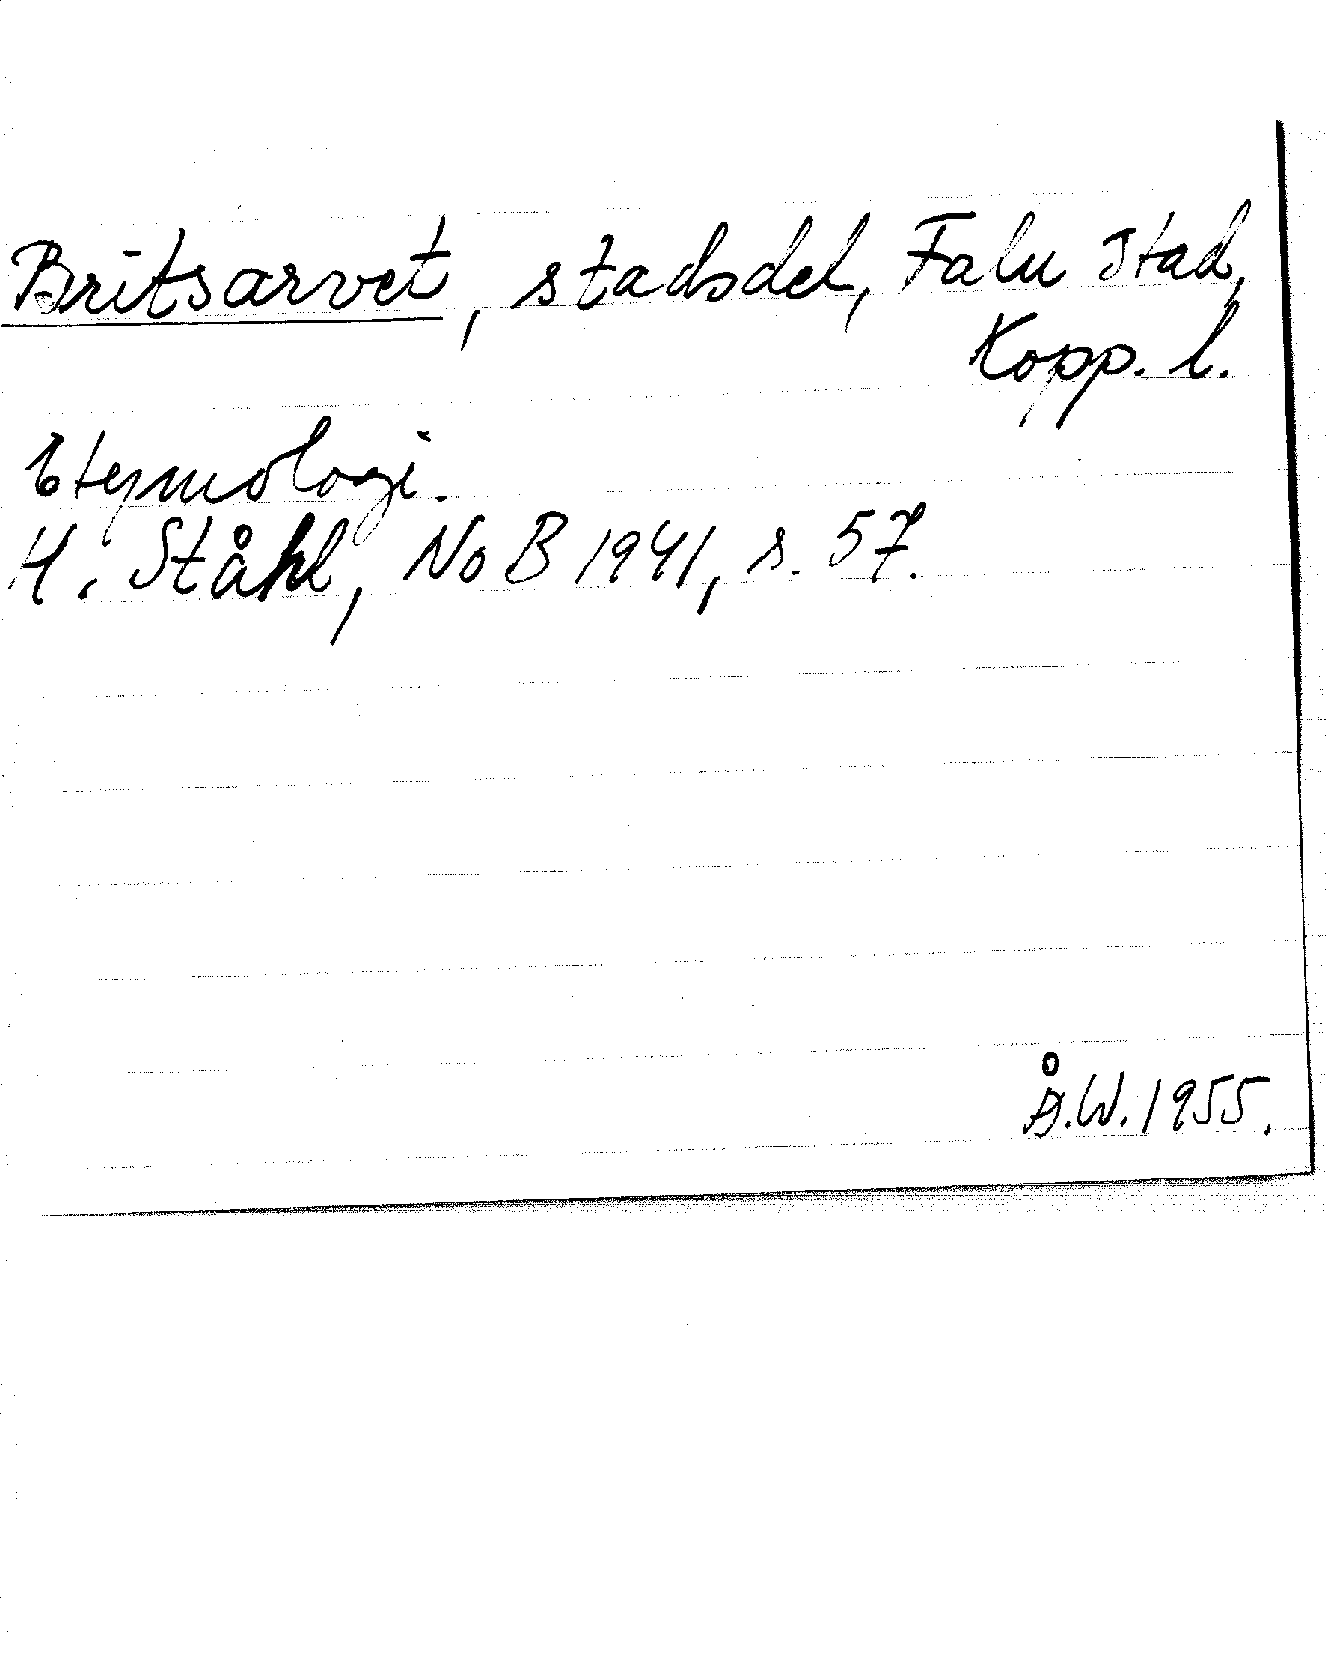 Britsarvet, stadsdel, Falu stad,
Kopp. l.
Etymologi.
H. Ståhl, NoB 1941, s. 57.
Å.W. 1955.